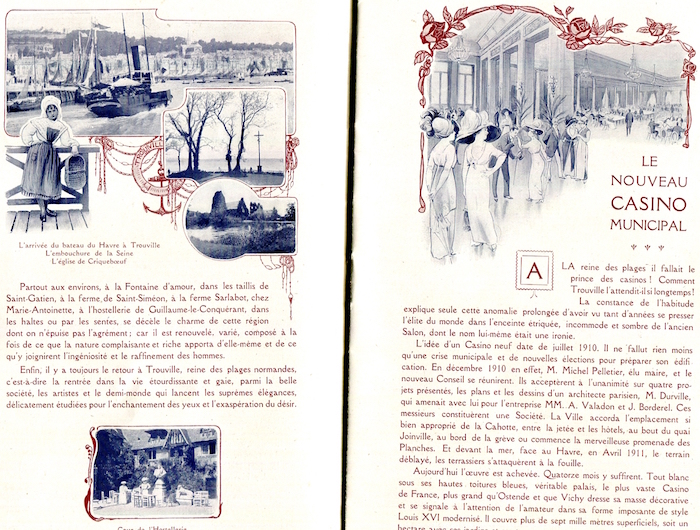 TROUVILLE
L'arrivée du bateau du Havre à Trouville
L'embouchure de la Seine
L'église de Criquebœuf
Partout aux environs, à la Fontaine d'amour, dans les taillis de
Saint-Gatien, à la ferme de Saint-Siméon, à la ferme Sarlabot, chez
Marie-Antoinette, à l'hostellerie de Guillaume-le-Conquérant, dans
les haltes ou par les sentes, se décèle le charme de cette région
dont on n'épuise pas l'agrément; car il est renouvelé, varié, composé à la
fois de ce que la nature complaisante et riche apporta d'elle-même et de ce
qu'y joignirent l'ingéniosité et le raffinement des hommes.
Enfin, il y a toujours le retour à Trouville, reine des plages normandes,
c'est-à-dire la rentrée dans la vie étourdissante et gaie, parmi la belle
société, les artistes et le demi-monde qui lancent les suprêmes élégances,
délicatement étudiées pour l'enchantement des yeux et l'exaspération du désir.
Cour de l'Hostellerie
LE
NOUVEAU
CASINO
MUNICIPAL
A LA reine des plages il fallait le
prince des casinos! Comment
Trouville l'attendit-il si longtemps!
La constance de l'habitude
explique seule cette anomalie prolongée d'avoir vu tant d'années se presser
l'élite du monde dans l'enceinte étriquée, incommode et sombre de l'ancien
Salon, dont le nom lui-même était une ironie.
L'idée d'un Casino neuf date de juillet 1910. Il ne fallut rien moins
qu'une crise municipale et de nouvelles élections pour préparer son édifi-
cation. En décembre 1910 en effet, M. Michel Pelletier, élu maire, et le
nouveau Conseil se réunirent. Ils acceptèrent à l'unanimité sur quatre pro-
jets présentés, les plans et les dessins d'un architecte parisien, M. Durville,
qui amenait avec lui pour l'entreprise MM. A. Valadon et J. Borderel. Ces
messieurs constituèrent une Société. La Ville accorda l'emplacement si
bien approprié de la Cahotte, entre la jetée et les hôtels, au bout du quai
Joinville, au bord de la grève ou commence la merveilleuse promenade des
Planches. Et devant la mer, face au Havre, en Avril 1911, le terrain
déblayé, les terrassiers s'attaquèrent à la fouille.
Aujourd'hui l'œuvre est achevée. Quatorze mois y suffirent. Tout blanc
sous ses hautes toitures bleues, véritable palais, le plus vaste Casino
de France, plus grand qu'Ostende et que Vichy dresse sa masse décorative
et se signale à l'attention de l'amateur dans sa forme imposante de style
Louis XVI modernisé. Il couvre plus de sept mille mètres superficiels, soit un